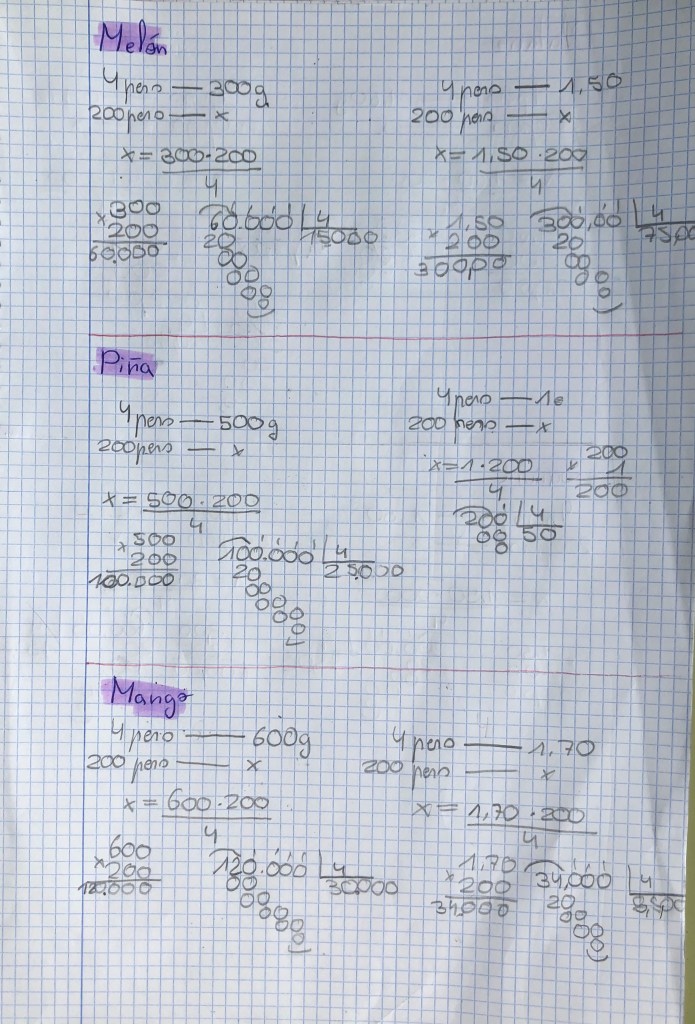 Melón
4 pers — 300g
200 pers — x
x = 300·200
4
300
x 200
60.000
60.000 4
20 15000
00
00
00
0
4 pers — 1,50
200 pers — x
x = 1,50·200
4
1,50
x 200
300,00
300,00 4
20 75,00
00
00
0
Piña
4 pers — 500g
200 pers — x
x = 500·200
4
500
x 200
100.000
100.000 4
20 25.000
00
00
00
0
4 pers — 1€
200 pers — x
x = 1·200
4
200
x 1
200
200 4
00 50
0
Mango
4 pers — 600g
200 pers — x
x = 600·200
4
600
x 200
120.000
120.000 4
00 30.000
00
00
00
0
4 pers — 1,70
200 pers — x
x = 1,70·200
4
1,70
x 200
34,000
34,000 4
20
00
00
0